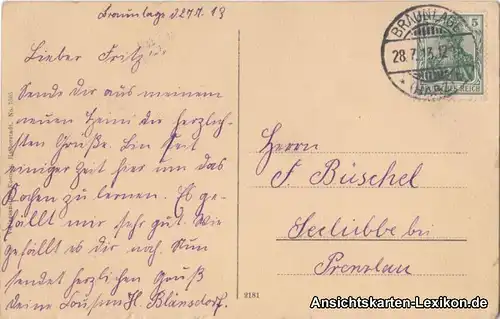 Braunlage d. 27.7.13
Lieber Fritz
Sende Dir aus meinem
neuen Heim die herzlich-
sten Grüße. Bin seit
einiger Zeit hier um das
Kochen zu lernen. Es ge-
fällt mir sehr gut. Wie
gefällt es dir noch. Nun
sendet herzlichen Gruß
Deine Cousine H. Blänsdorf.
BRAUNLAGE
28.7.13.12
(HARZ)
5
REICH
Herrn
F. Büschel
Seelübbe bei
Prenzlau
2181
Ansichtskarten-Lexikon.de